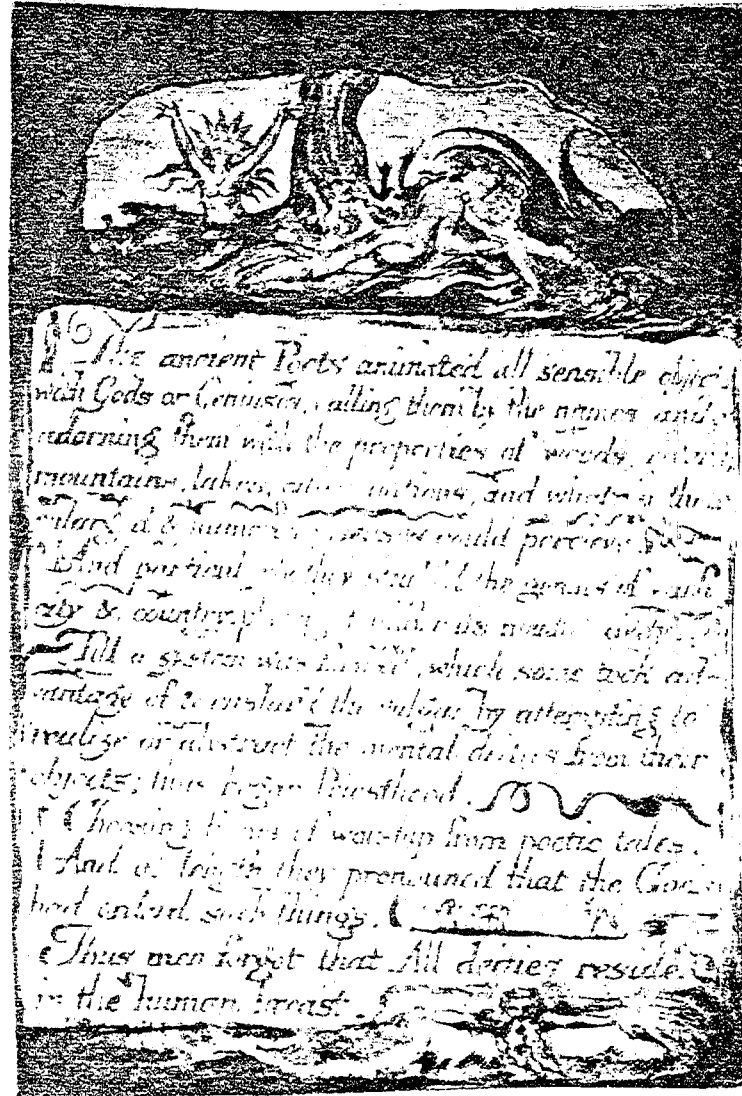 The ancient Poets animated all sensible objects
with Gods or Geniuses, calling them by the names and
adorning them with the properties of woods, rivers,
mountains, lakes, cities, nations, and whatever their
enlarg'd & numerous senses could percieve.
And particularly they studied the genius of each
city & country, placing it under its mental deity.
Till a system was formed, which some took ad-
vantage of & enslav'd the vulgar by attempting to
realize or abstract the mental deities from their
objects; thus began Priesthood.
Choosing forms of worship from poetic tales.
And at length they pronounced that the Gods
had orderd such things.
Thus men forgot that All deities reside
in the human breast.